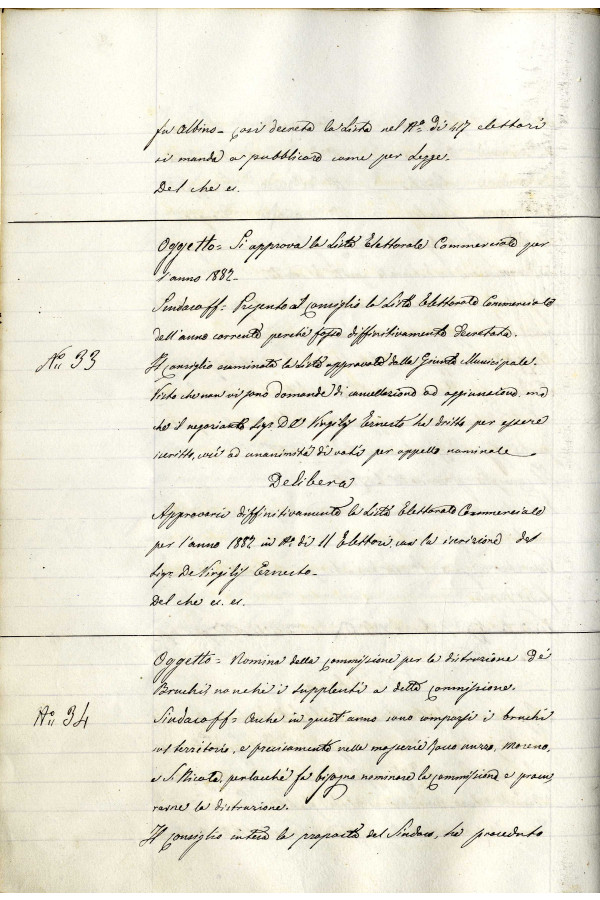 fu Albino - Così decreta la Lista nel N.º di 417 elettori
si manda a pubblicare come per Legge.
Del che es.
Oggetto = Si approva la Lista Elettorale Commerciale per
l'anno 1882 -
Sindaco ff = Presento al Consiglio la Lista Elettorale Commerciale
dell'anno corrente perchè fosse diffinitivamente decretata.
N.º 33
Il Consiglio esaminata la Lista approvata dalla Giunta Municipale.
Visto che non vi sono domande di cancellazione ed aggiunzione, ma
che il negoziante Sigr De Virgilij Ernesto ha dritto per essere
iscritto, così ad unanimità di voti per appello nominale
Delibera
Approvarsi diffinitivamente la Lista Elettorale Commerciale
per l'anno 1882 in N.º di 11 Elettori, con la iscrizione del
Sigr De Virgilij Ernesto -
Del che es. es.
Oggetto = Nomina della Commissione per la distruzione de'
Bruchi, nonchè i supplenti a detta Commissione.
N.º 34
Sindaco ff = Anche in quest'anno sono comparsi i bruchi
territorio, e precisamente nelle masserie Moreno,
e S. Nicola, perlocchè fa bisogno nominare la Commissione e procu
rarne la distruzione.
Il Consiglio intesa la proposta del Sindaco, ha proceduto